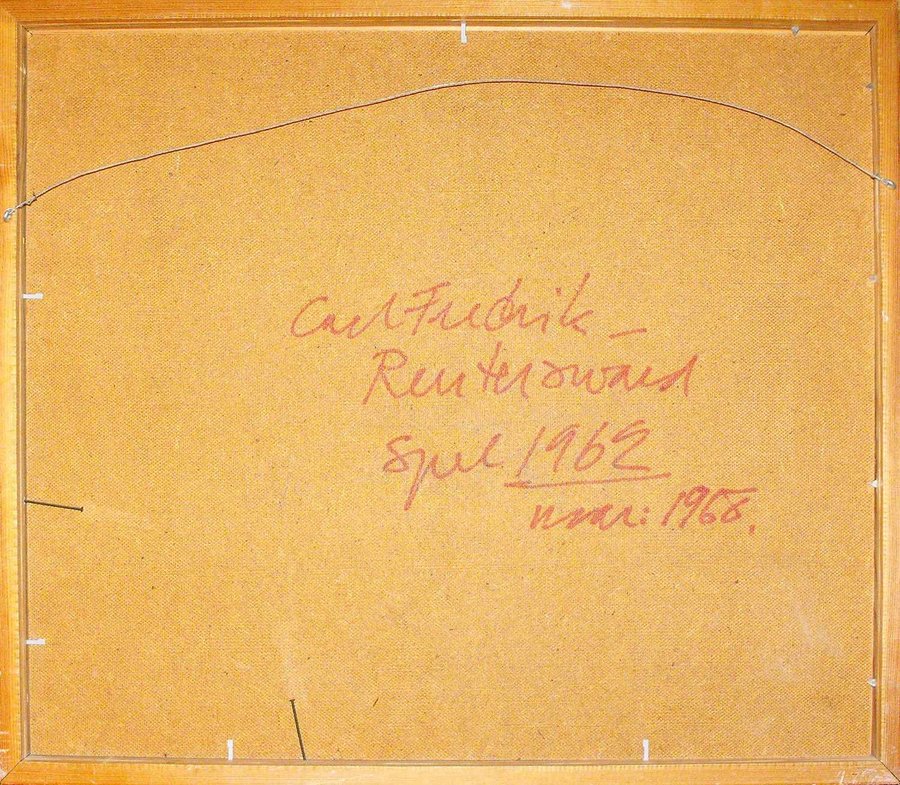 Carl Fredrik –
Reuterswärd
Spel 1962
1968.